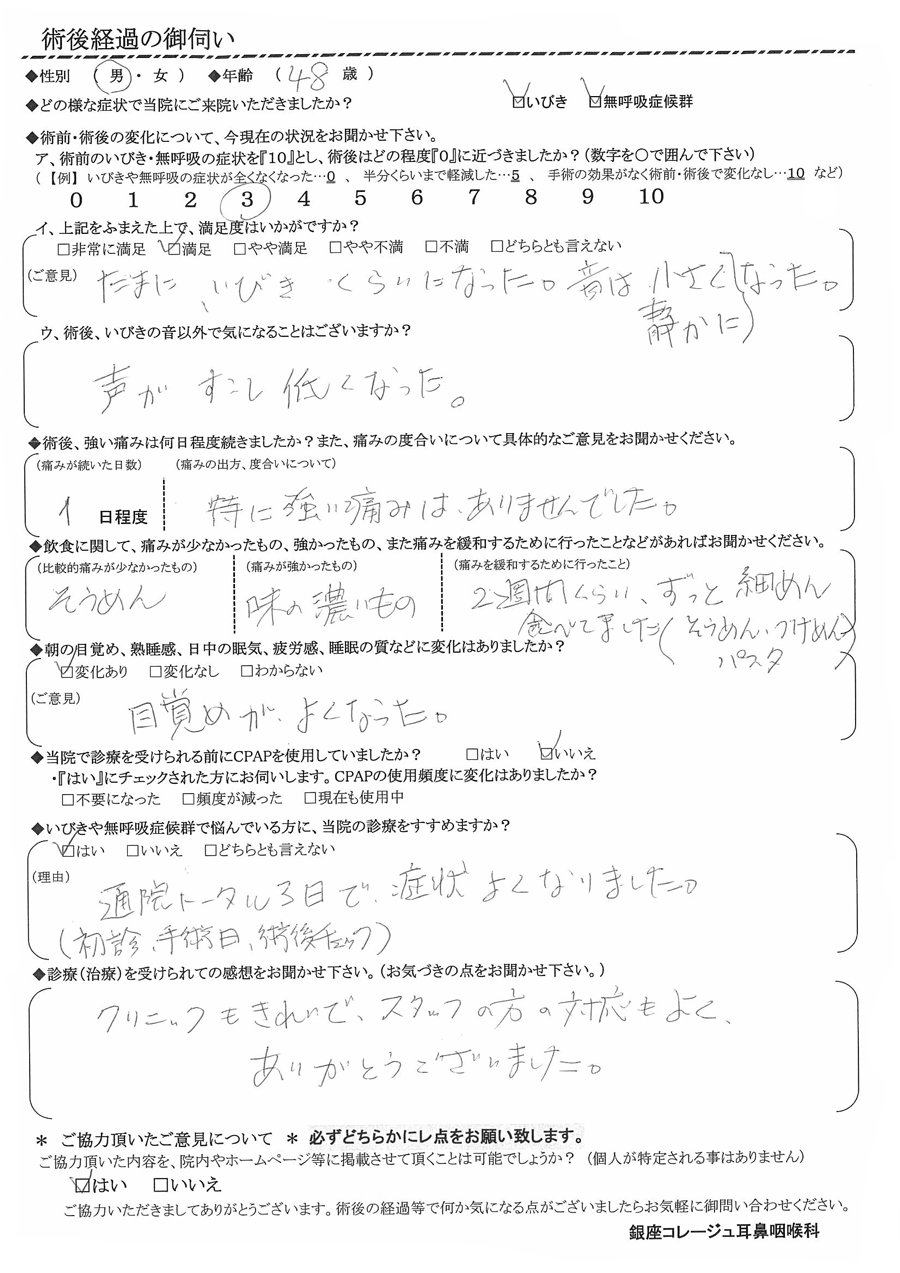 術後経過の御伺い
◆性別 （ 男 ・ 女 ） ◆年齢 （ 48 歳 ）
◆どの様な症状で当院にご来院いただきましたか？ ☑いびき ☑無呼吸症候群
◆術前・術後の変化について、今現在の状況をお聞かせ下さい。
ア、術前のいびき・無呼吸の症状を『10』とし、術後はどの程度『0』に近づきましたか？（数字を〇で囲んで下さい）
（【例】 いびきや無呼吸の症状が全くなくなった…0 、 半分くらいまで軽減した…5 、 手術の効果がなく術前・術後で変化なし…10 など）
0 1 2 3 4 5 6 7 8 9 10
イ、上記をふまえた上で、満足度はいかがですか？
□非常に満足 ☑満足 □やや満足 □やや不満 □不満 □どちらとも言えない
（ご意見） たまに いびき くらいになった。音は 小さくなった。
静かに
ウ、術後、いびきの音以外で気になることはございますか？
声が すこし 低くなった。
◆術後、強い痛みは何日程度続きましたか？また、痛みの度合いについて具体的なご意見をお聞かせください。
（痛みが続いた日数） （痛みの出方、度合いについて）
1 日程度 特に強い痛みは、ありませんでした。
◆飲食に関して、痛みが少なかったもの、強かったもの、また痛みを緩和するために行ったことなどがあればお聞かせください。
（比較的痛みが少なかったもの） （痛みが強かったもの） （痛みを緩和するために行ったこと）
そうめん 味の濃いもの 2週間くらい、ずっと細めん
食べてました（そうめん、つけめん）
パスタ
◆朝の目覚め、熟睡感、日中の眠気、疲労感、睡眠の質などに変化はありましたか？
☑変化あり □変化なし □わからない
（ご意見）
目覚めが、よくなった。
◆当院で診療を受けられる前にCPAPを使用していましたか？ □はい ☑いいえ
・『はい』にチェックされた方にお伺いします。CPAPの使用頻度に変化はありましたか？
□不要になった □頻度が減った □現在も使用中
◆いびきや無呼吸症候群で悩んでいる方に、当院の診療をすすめますか？
☑はい □いいえ □どちらとも言えない
（理由）
通院トータル3日で、症状よくなりました。
（初診、手術日、術後チェック）
◆診療（治療）を受けられての感想をお聞かせ下さい。（お気づきの点をお聞かせ下さい。）
クリニックもきれいで、スタッフの方の対応もよく、
ありがとうございました。
＊ ご協力頂いたご意見について ＊ 必ずどちらかにレ点をお願い致します。
ご協力頂いた内容を、院内やホームページ等に掲載させて頂くことは可能でしょうか？ （個人が特定される事はありません）
☑はい □いいえ
ご協力いただきましてありがとうございます。術後の経過等で何か気になる点がございましたらお気軽に御問い合わせください。
銀座コレージュ耳鼻咽喉科